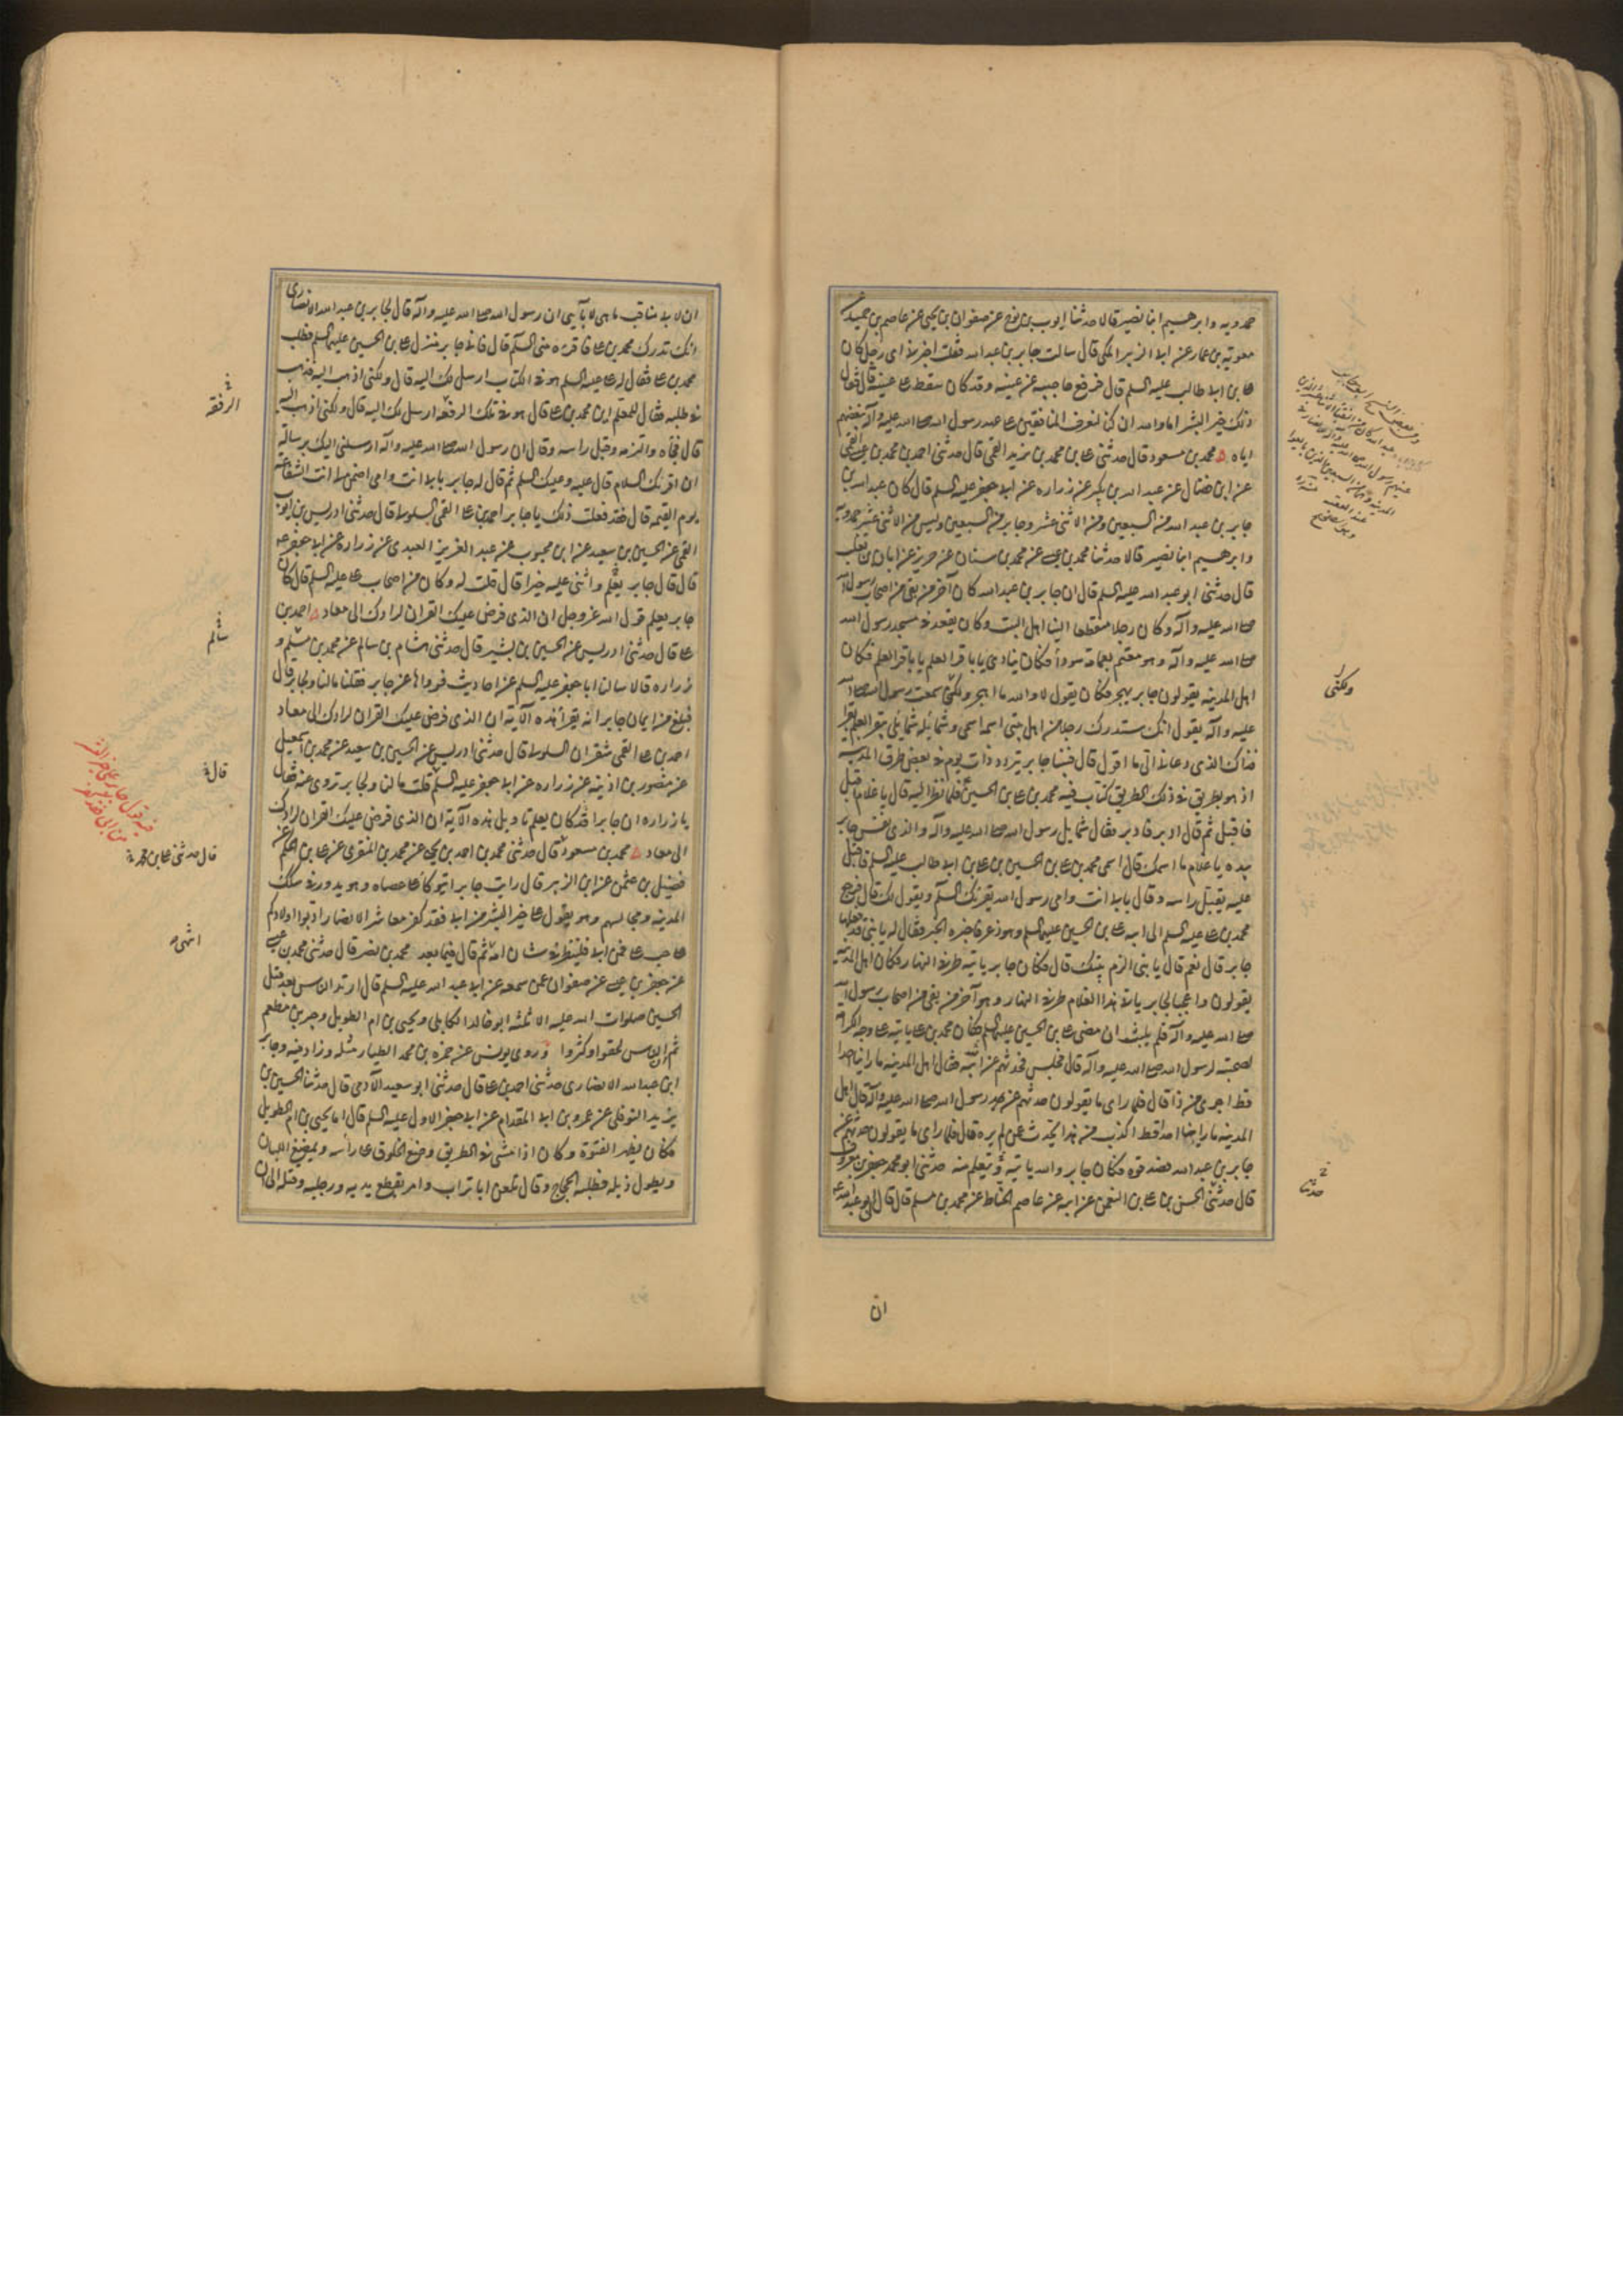 حمدويه وابرهيم ابنا نصير قالا حدثنا ايوب بن نوح عن صفوان بن يحيى عن عاصم بن حميد عن
معوية بن عمار عن ابى الزبير المكى قال سالت جابر بن عبد الله فقلت اخبرنى اى رجل كان
على بن ابى طالب عليه السلم قال فرفع حاجبيه عن عينيه وقد كان سقط على عينيه قال فقال
ذلك خير البشر اما والله ان كنا لنعرف المنافقين على عهد رسول الله صلى الله عليه وآله ببغضهم
اياه محمد بن مسعود قال حدثنى على بن محمد بن يزيد القمى قال حدثنى احمد بن محمد بن عيسى القمى
عن ابن فضال عن عبد الله بن بكير عن زراره عن ابى جعفر عليه السلم قال كان عبد الله بن
جابر بن عبد الله من السبعين ومن الاثنى عشر وجابر من السبعين وليس من الاثنى عشر حمدويه
وابرهيم ابنا نصير قالا حدثنا محمد بن عيسى عن محمد بن سنان عن حريز عن ابان بن تغلب
قال حدثنى ابو عبد الله عليه السلم قال ان جابر بن عبد الله كان آخر من بقى من اصحاب رسول الله
صلى الله عليه وآله وكان رجلا منقطعا الينا اهل البيت وكان يقعد فى مسجد رسول الله
صلى الله عليه وآله وهو معتم بعمامة سوداء فكان ينادى يا باقر العلم يا باقر العلم فكان
اهل المدينه يقولون جابر يهجر فكان يقول لا والله ما اهجر ولكنى سمعت رسول الله صلى الله
عليه وآله يقول انك ستدرك رجلا من اهل بيتى اسمه اسمى وشمائله شمايلى يبقر العلم بقرا
فذاك الذى دعانى الى ما اقول قال فبينا جابر يتردد ذات يوم فى بعض طرق المدينه
اذ هو بطريق فى ذلك الطريق كتاب فيه محمد بن على بن الحسين فلما نظر اليه قال يا غلام اقبل
فاقبل ثم قال ادبر فادبر فقال شمايل رسول الله صلى الله عليه وآله والذى نفس جابر
بيده يا غلام ما اسمك قال اسمى محمد بن على بن الحسين بن على بن ابى طالب عليه السلم فاقبل
عليه يقبل راسه وقال بابى انت وامى رسول الله يقرئك السلم ويقول لك قال فرجع
محمد بن على عليه السلم الى ابيه على بن الحسين عليهما السلم وهو ذعر فاخبره الخبر فقال له يا بنى قد فعلها
جابر قال نعم قال يا بنى الزم بيتك قال فكان جابر ياتيه طرفى النهار فكان اهل المدينه
يقولون واعجبا لجابر ياتى هذا الغلام طرفى النهار وهو آخر من بقى من اصحاب رسول الله
صلى الله عليه وآله فلم يلبث ان مضى على بن الحسين عليهما السلم فكان محمد بن على ياتيه على وجه الكرامة
لصحبته لرسول الله صلى الله عليه وآله قال فجلس فحدثهم عن ابيه فقال اهل المدينه ما راينا احدا
قط اجرى من ذا قال فلما راى ما يقولون حدثهم عن رسول الله صلى الله عليه وآله قال اهل
المدينه ما راينا احدا قط اكذب من هذا يحدث عمن لم يره قال فلما راى ما يقولون حدثهم عن
جابر بن عبد الله فصدقوه فكان جابر والله ياتيه ويتعلم منه حدثنى ابو محمد جعفر بن معروف
قال حدثنى الحسن بن على بن النعمن عن ابيه عن عاصم الحناط عن محمد بن مسلم قال قال لى ابو عبد الله
ولكنى
حدثنا
ان
ان لابى مناقب ما هى لابائى ان رسول الله صلى الله عليه وآله قال لجابر بن عبد الله الانصارى
انك تدرك محمد بن على فاقرئه منى السلم قال فاتى جابر منزل على بن الحسين عليهما السلم فطلب
محمد بن على فقال له على عليه السلم هو فى الكتاب ارسل لك اليه قال ولكنى اذهب اليه فذهب
فى طلبه فقال للمعلم اين محمد بن على قال هو فى تلك الرفقه ارسل لك اليه قال ولكنى اذهب اليه
قال فجاه والتزمه وقبل راسه وقال ان رسول الله صلى الله عليه وآله ارسلنى اليك برسالة
ان اقرئك السلام قال عليه وعليك السلم ثم قال له جابر بابى انت وامى اضمن لى انت الشفاعة
يوم القيمه قال فقد فعلت ذلك يا جابر احمد بن على القمى السلولى قال حدثنى ادريس بن ايوب
القمى عن الحسين بن سعيد عن ابن محبوب عن عبد العزيز العبدى عن زراره عن ابى جعفر ع
قال قال جابر يعلم واثنى عليه خيرا قال قلت له وكان من اصحاب على عليه السلم قال كان
جابر يعلم قول الله عز وجل ان الذى فرض عليك القران لرادك الى معاد احمد بن
على قال حدثنى ادريس عن الحسين بن بشير قال حدثنى هشام بن سالم عن محمد بن مسلم و
زراره قالا سالنا ابا جعفر عليه السلم عن احاديث فرواها عن جابر فقلنا مالنا ولجابر قال
فبلغ من ايمان جابر انه يقرا هذه الآية ان الذى فرض عليك القران لرادك الى معاد
احمد بن على القمى شقران السلولى قال حدثنى ادريس عن الحسين بن سعيد عن محمد بن اسمعيل
عن منصور بن اذينه عن زراره عن ابى جعفر عليه السلم قلت مالنا ولجابر تروى عنه فقال
يا زراره ان جابرا قد كان يعلم تاويل هذه الآية ان الذى فرض عليك القران لرادك
الى معاد محمد بن مسعود قال حدثنى محمد بن احمد بن يحيى عن محمد بن الشقرى عن على بن الحكم عن
فضيل بن عثمن عن ابى الزبير قال رايت جابرا يتوكا على عصاه وهو يدور فى سكك
المدينه ومجالسهم وهو يقول على خير البشر من ابى فقد كفر معاشر الانصار ادبوا اولادكم
على حب على فمن ابى فلينظر فى شان امه ثم قال فيما بعد محمد بن نصر قال حدثنى محمد بن عيسى
عن جعفر بن عيسى عن صفوان عمن سمعه عن ابى عبد الله عليه السلم قال ارتد الناس بعد قتل
الحسين صلوات الله عليه الا ثلثه ابو خالد الكابلى ويحيى بن ام الطويل وجبير بن مطعم
ثم ان الناس لحقوا وكثروا وروى يونس عن حمزه بن محمد الطيار مثله وزاد فيه وجابر
ابن عبد الله الانصارى حدثنى احمد بن على قال حدثنى ابو سعيد الآدمى قال حدثنا الحسين بن
يزيد النوفلى عن عمرو بن ابى المقدام عن ابى جعفر الاول عليه السلم قال اما يحيى بن ام الطويل
فكان يظهر الفتوة وكان اذا مشى فى الطريق وضع الخلوق على راسه ويمضغ اللبان
ويطول ذيله فطلبه الحجاج وقال تلعن ابا تراب وامر بقطع يديه ورجليه وقتله الى ان
الرفقه
سالم
قال
قال حدثنى على بن محمد
فيه قول جابر على خير البشر
فمن ابى فقد كفر